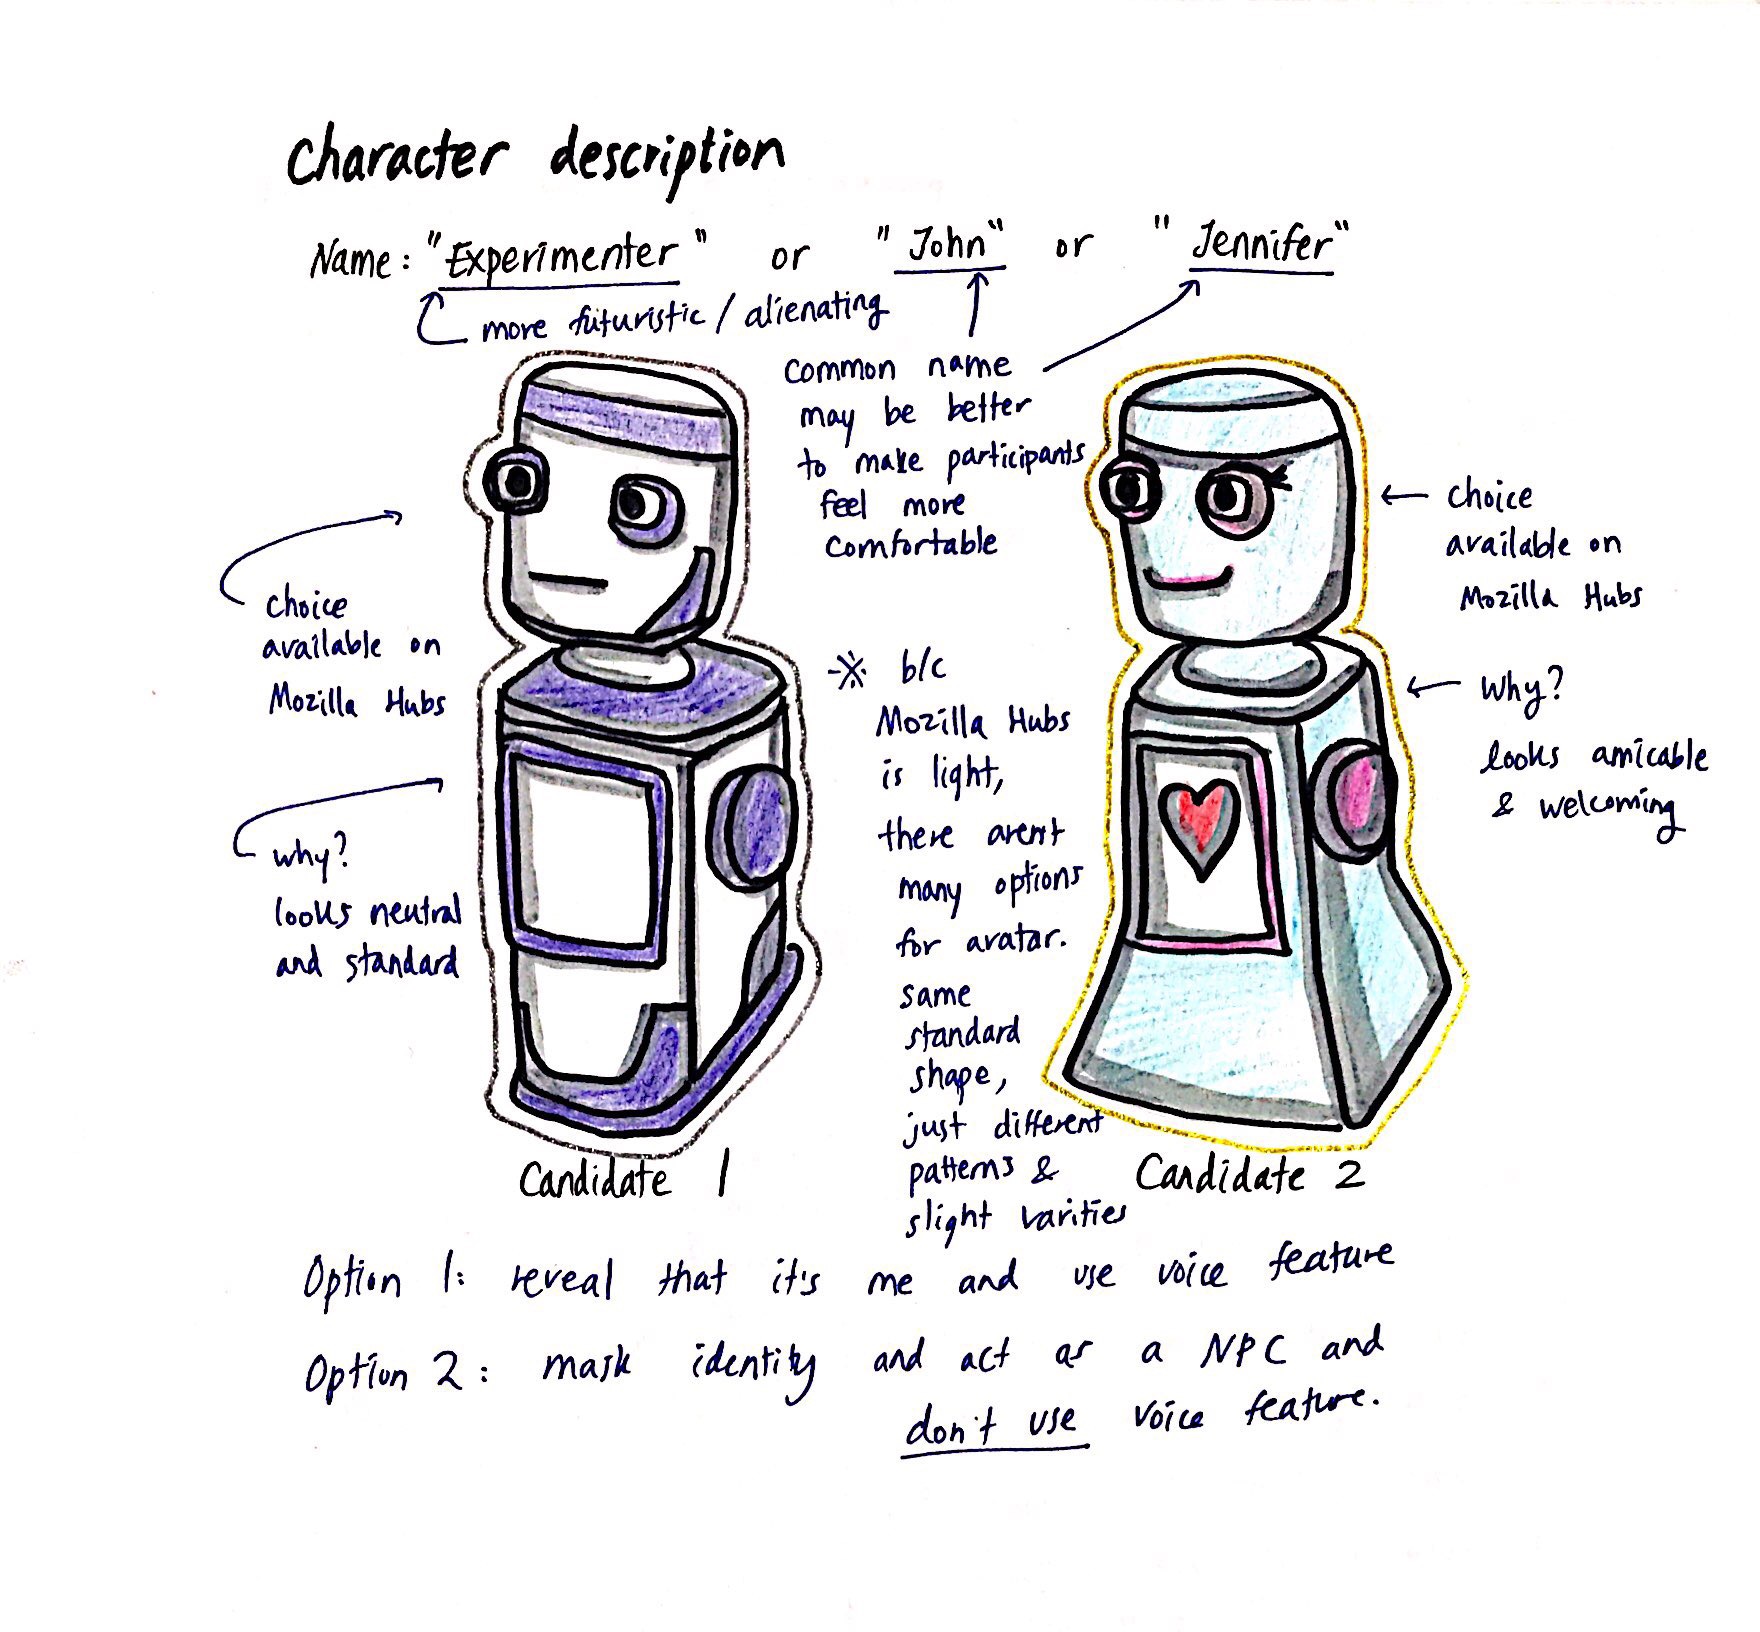 Character description
Name: "Experimenter" or "John" or "Jennifer"
more futuristic / alienating
common name
may be better
to make participants
feel more
comfortable
choice
available on
Mozilla Hubs
why?
looks neutral
and standard
※ b/c
Mozilla Hubs
is light,
there arent
many options
for avatar.
same
standard
shape,
just different
patterns &
slight varities
choice
available on
Mozilla Hubs
Why?
looks amicable
& welcoming
Candidate 1
Candidate 2
Option 1: reveal that it's me and use voice feature
Option 2: mask identity and act as a NPC and
don't use voice feature.